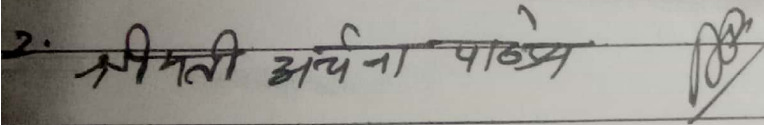 2. श्रीमती अर्चना पाण्डेय